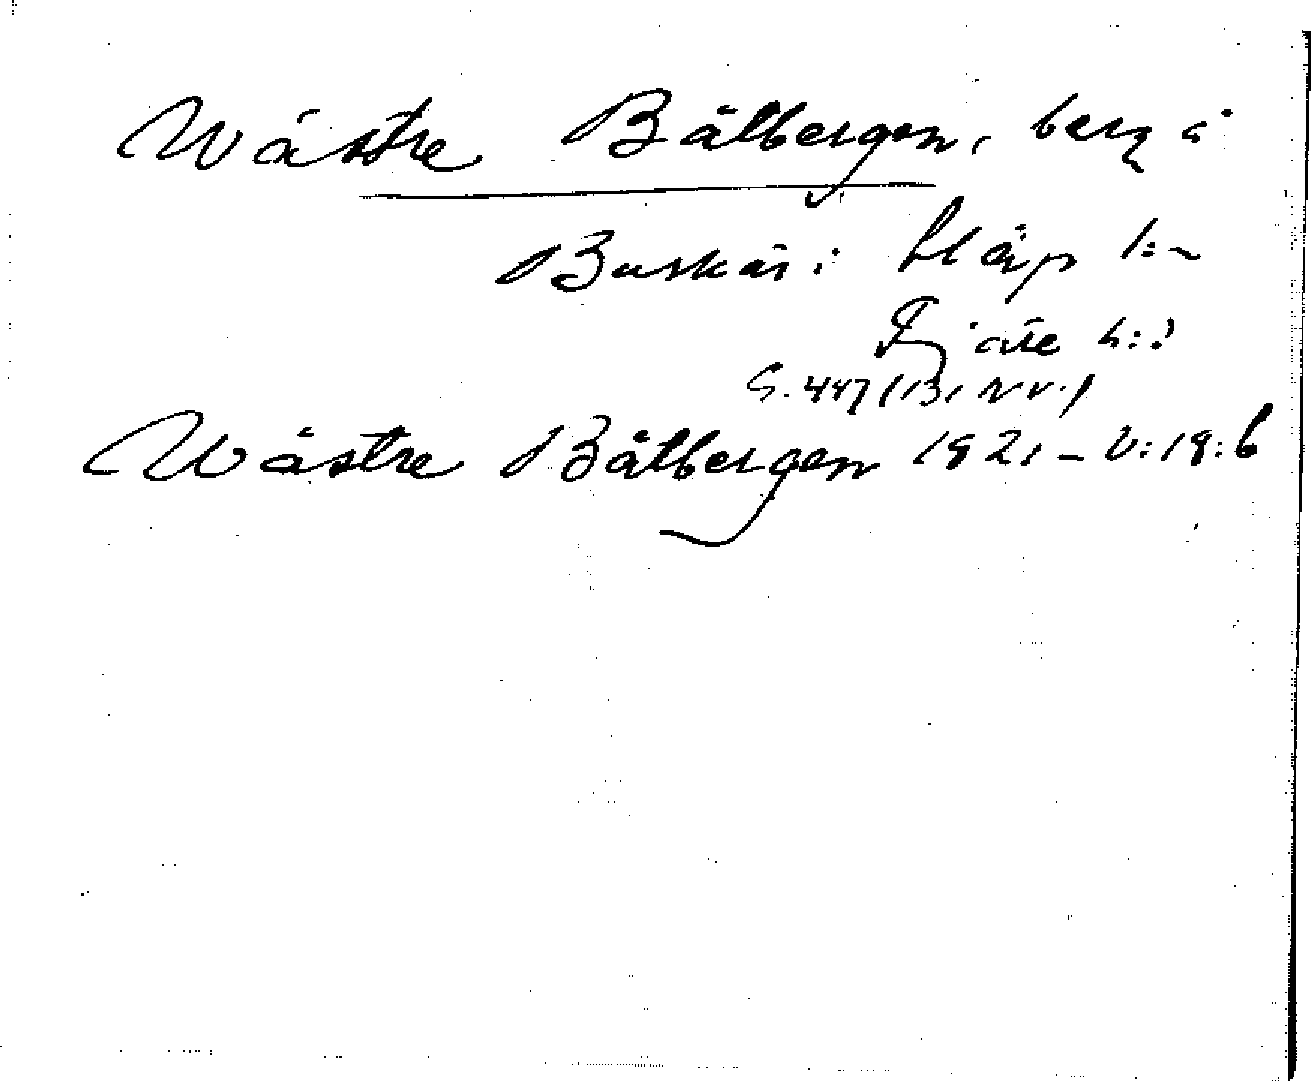 Wästre Bålbergen, berg å
Buskär i Släp l:n
Fjäre h:d
S. 447 (131 NV.)
Wästre Bålbergen 1921 - V:19:6